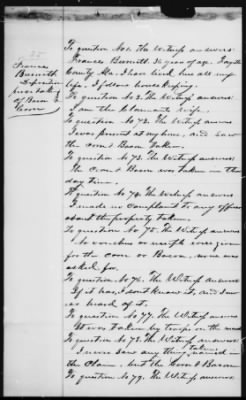 25
Frances
Burnett
Deposition
proves taking
of Bacon &
Corn
To question No 1. the Witness answers
Frances Burnett 36 years of age. Fayette
County Ala. I have lived here all my
life, I follow housekeeping.
To question No 2. The Witness answers
I am the Claimants wife.
To question No 72. The Witness answers
I was present at my home, and saw
the Corn & Bacon taken.
To question No 73. The Witness answers
The Corn & Bacon was taken in the
day time.
To question No 74. The Witness answers
I made no complaint to any officer
about the property taken.
To question No 75. The Witness answers
No vouchers or receipts were given
for the corn or Bacon, none was
asked for.
To question No 76. The Witness answers
If it has, I don't know it, and never
heard of it.
To question No 77. The Witness answers
It was taken by troops on the
To question No 78. The Witness answers
I never saw any thing taken, named in
the Claim, but the Corn & Bacon
To question No 79. The Witness answers